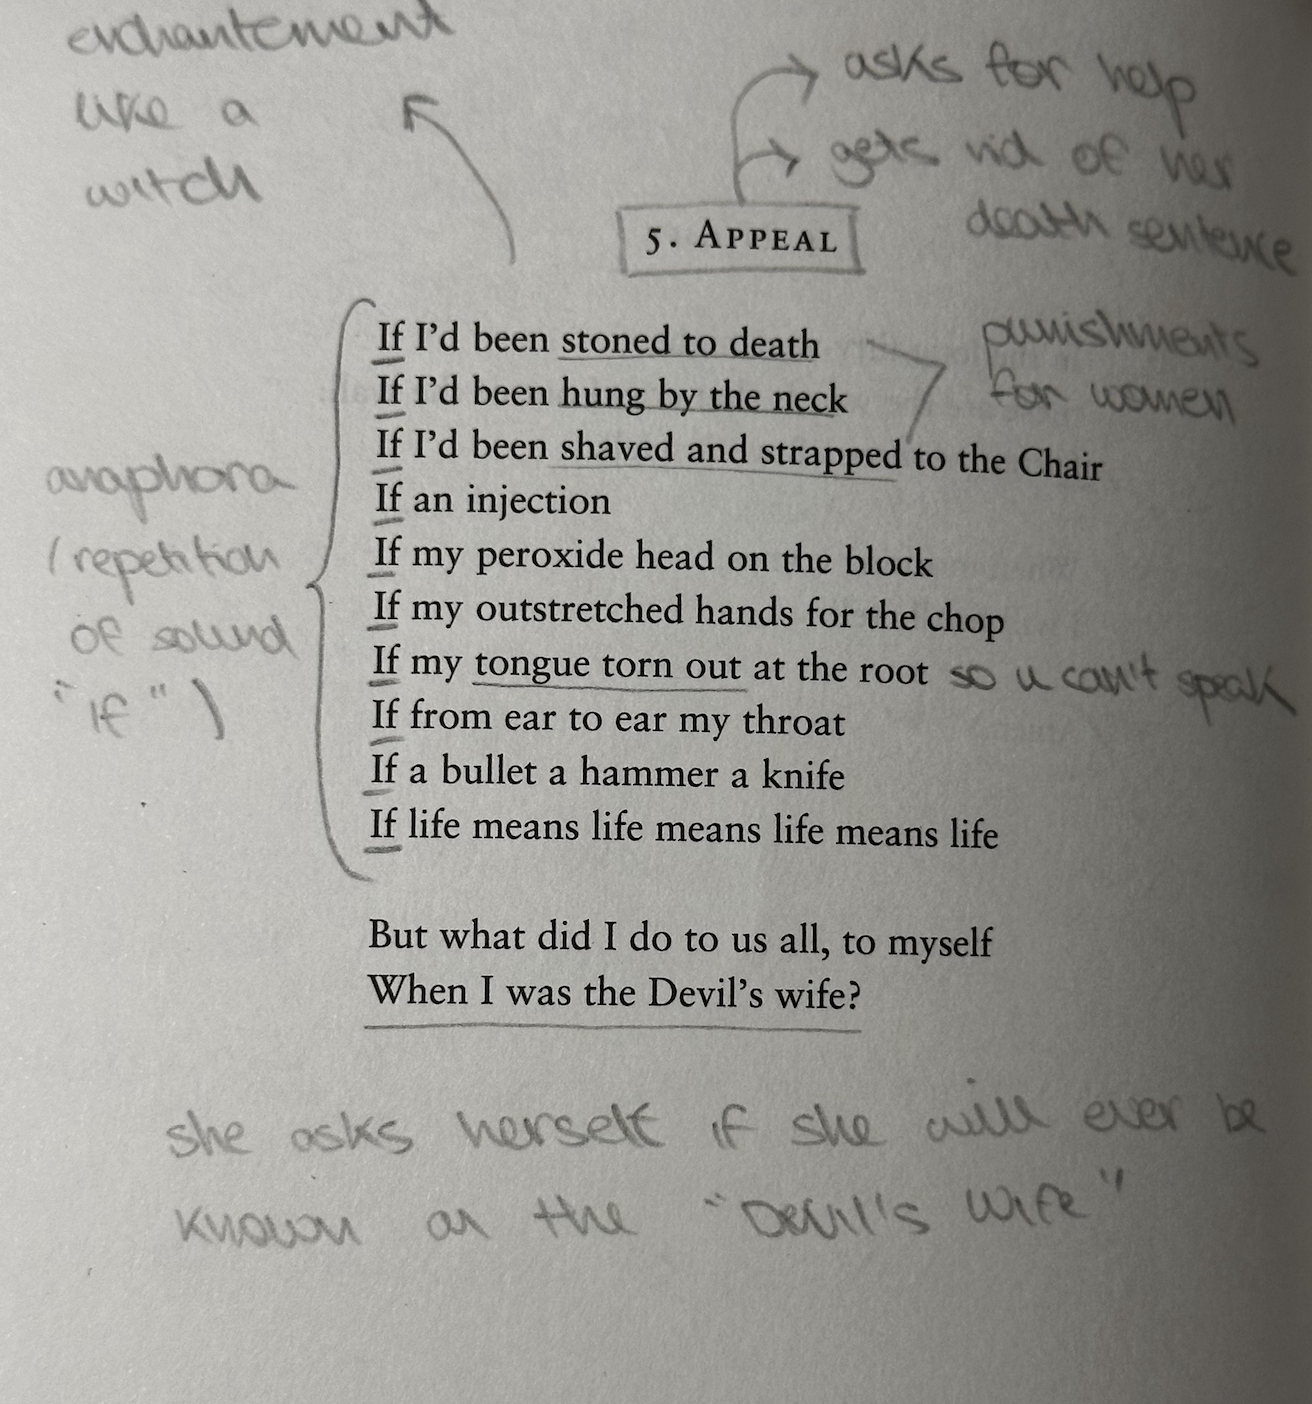 enchantement
like a
witch
asks for help
gets rid of her
death sentence
5. APPEAL
If I'd been stoned to death
If I'd been hung by the neck
punishments
for women
If I'd been shaved and strapped to the Chair
If an injection
If my peroxide head on the block
If my outstretched hands for the chop
If my tongue torn out at the root so u can't speak
If from ear to ear my throat
If a bullet a hammer a knife
If life means life means life means life
anaphora
(repetition
of sound
"if")
But what did I do to us all, to myself
When I was the Devil's wife?
she asks herself if she will ever be
known as the "Devil's Wife"